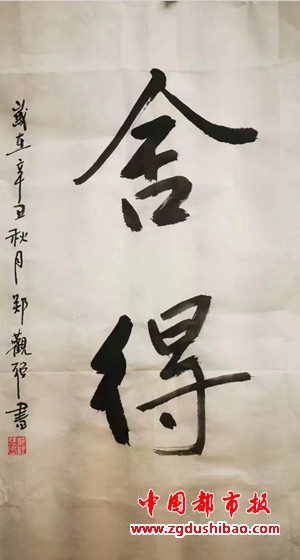 舍得
岁在辛丑秋月郑觀强書
中国都市报
www.zgdushibao.com